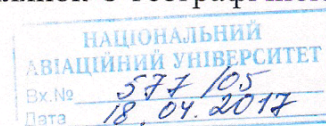 НАЦІОНАЛЬНИЙ
АВІАЦІЙНИЙ УНІВЕРСИТЕТ
Вх.№ 577/05
Дата 18.04.2017